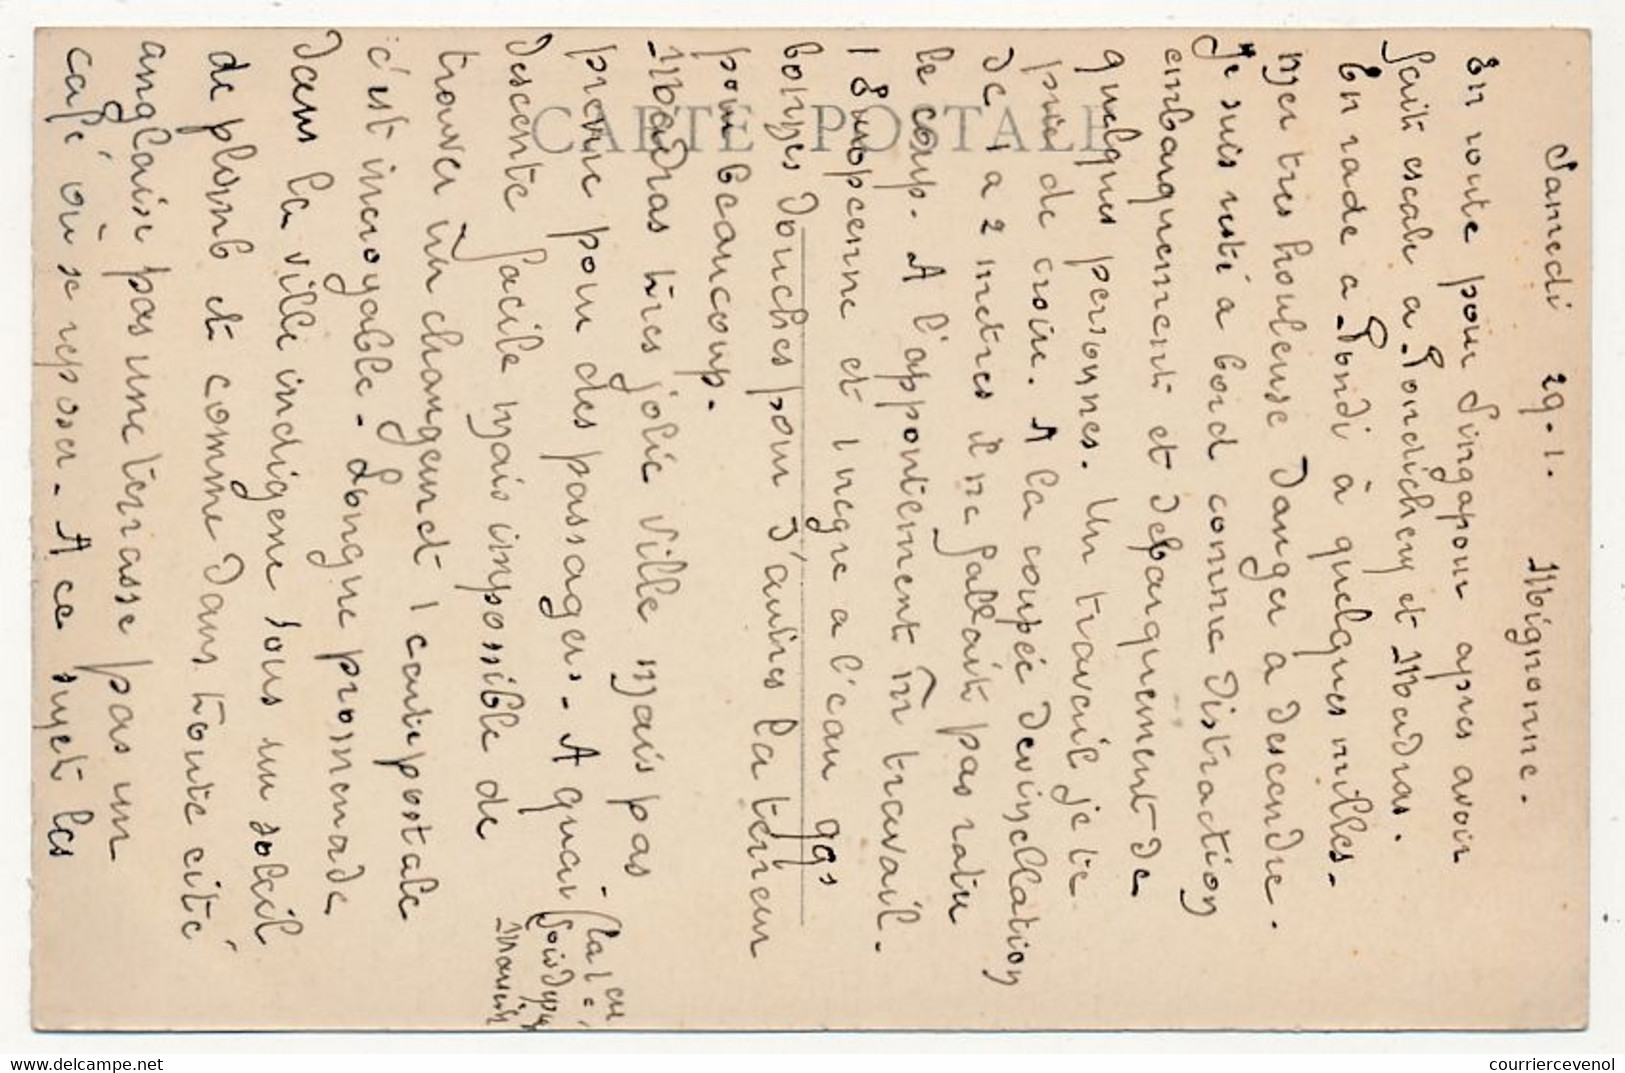 Samedi 29-1. Mignonne.
En route pour Singapour apres avoir
fait escale a Pondichery et Madras.
En rade a Pondi à quelques milles.
Mer tres houleuse Danger a descendre.
Je suis resté a bord comme distraction
embarquement et debarquement de
quelques personnes. Un travail je te
prie de croire. A la coupée devinellation
de 1 a 2 metres il ne fallait pas rater
le coup. A l'appontement un travail.
1 Européenne et 1 negre a l'eau qqs
bonnes douches pour d'autres la terreur
pour beaucoup.
Madras tres jolie ville mais pas
prevue pour des passagers. A quai
descente facile mais impossible de
trouver un changeur et 1 carte postale
c'est incroyable. Longue promenade
dans la ville indigene sous un soleil
de plomb et comme dans toute cité
anglaise pas une terrasse pas un
café où se reposer. A ce sujet les
CARTE POSTALE
courriercevenol